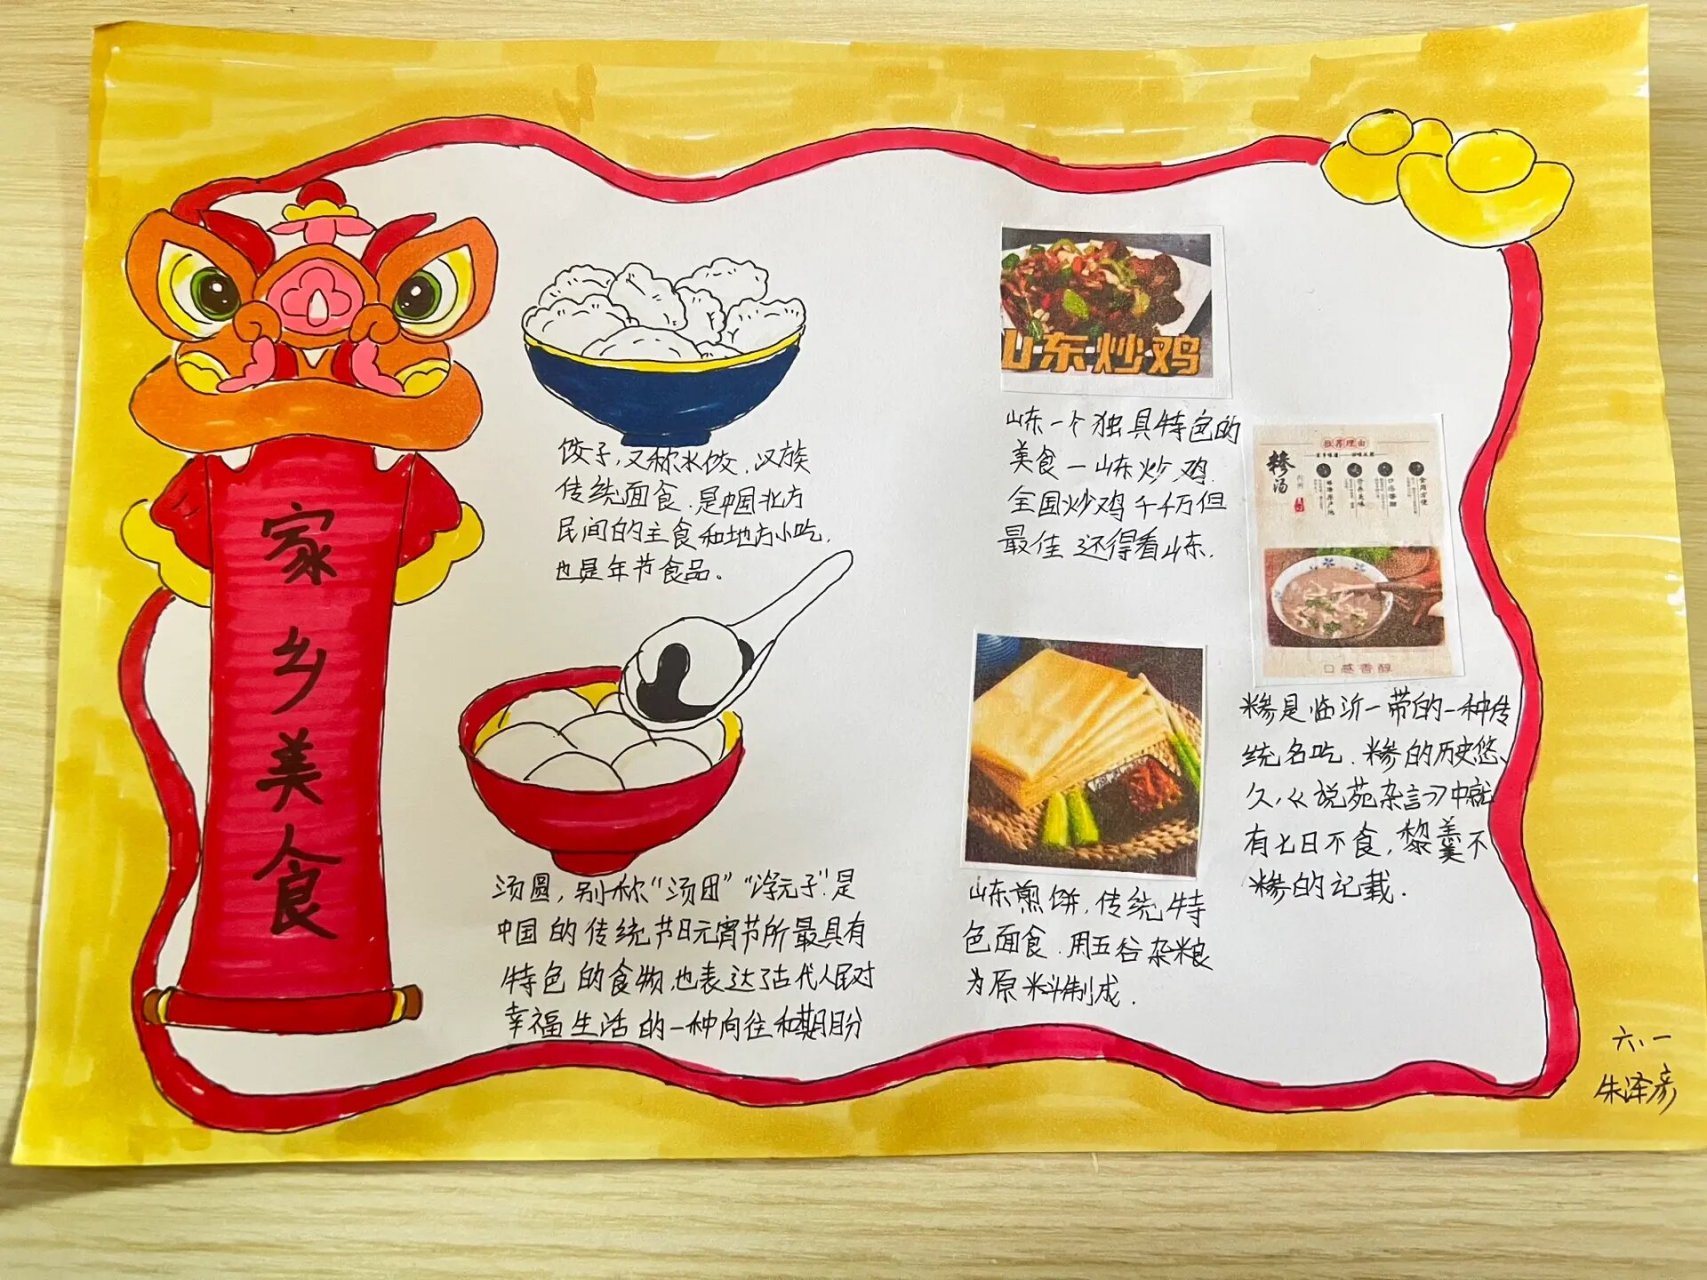 家乡美食
饺子，又称水饺，汉族
传统面食.是中国北方
民间的主食和地方小吃，
也是年节食品。
汤圆，别称“汤团”“浮元子”.是
中国的传统节日元宵节所最具有
特色的食物,也表达了古代人民对
幸福生活的一种向往和期盼
山东炒鸡
山东一个独具特色的
美食－山东炒鸡.
全国炒鸡千千万但
最佳还得看山东.
山东煎饼，传统特
色面食.用五谷杂粮
为原料制成.
推荐理由
糁汤
口感香醇
糁是临沂一带的一种传
统名吃.糁的历史悠
久，《说苑杂言》中就
有七日不食，黎羹不
糁的记载.
六、一
朱泽彦